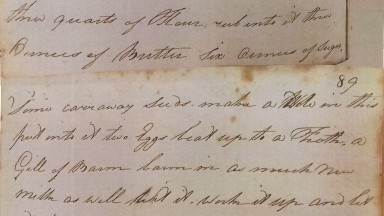 three quarts of Flour, rub into it three
Ounces of Butter Six Ounces of Sugar,
89
Some carraway seeds. make a Hole in this
put into it two Eggs beat up to a Froth, a
Gill of Barm in as much New
milk as will wet it. work it up and let